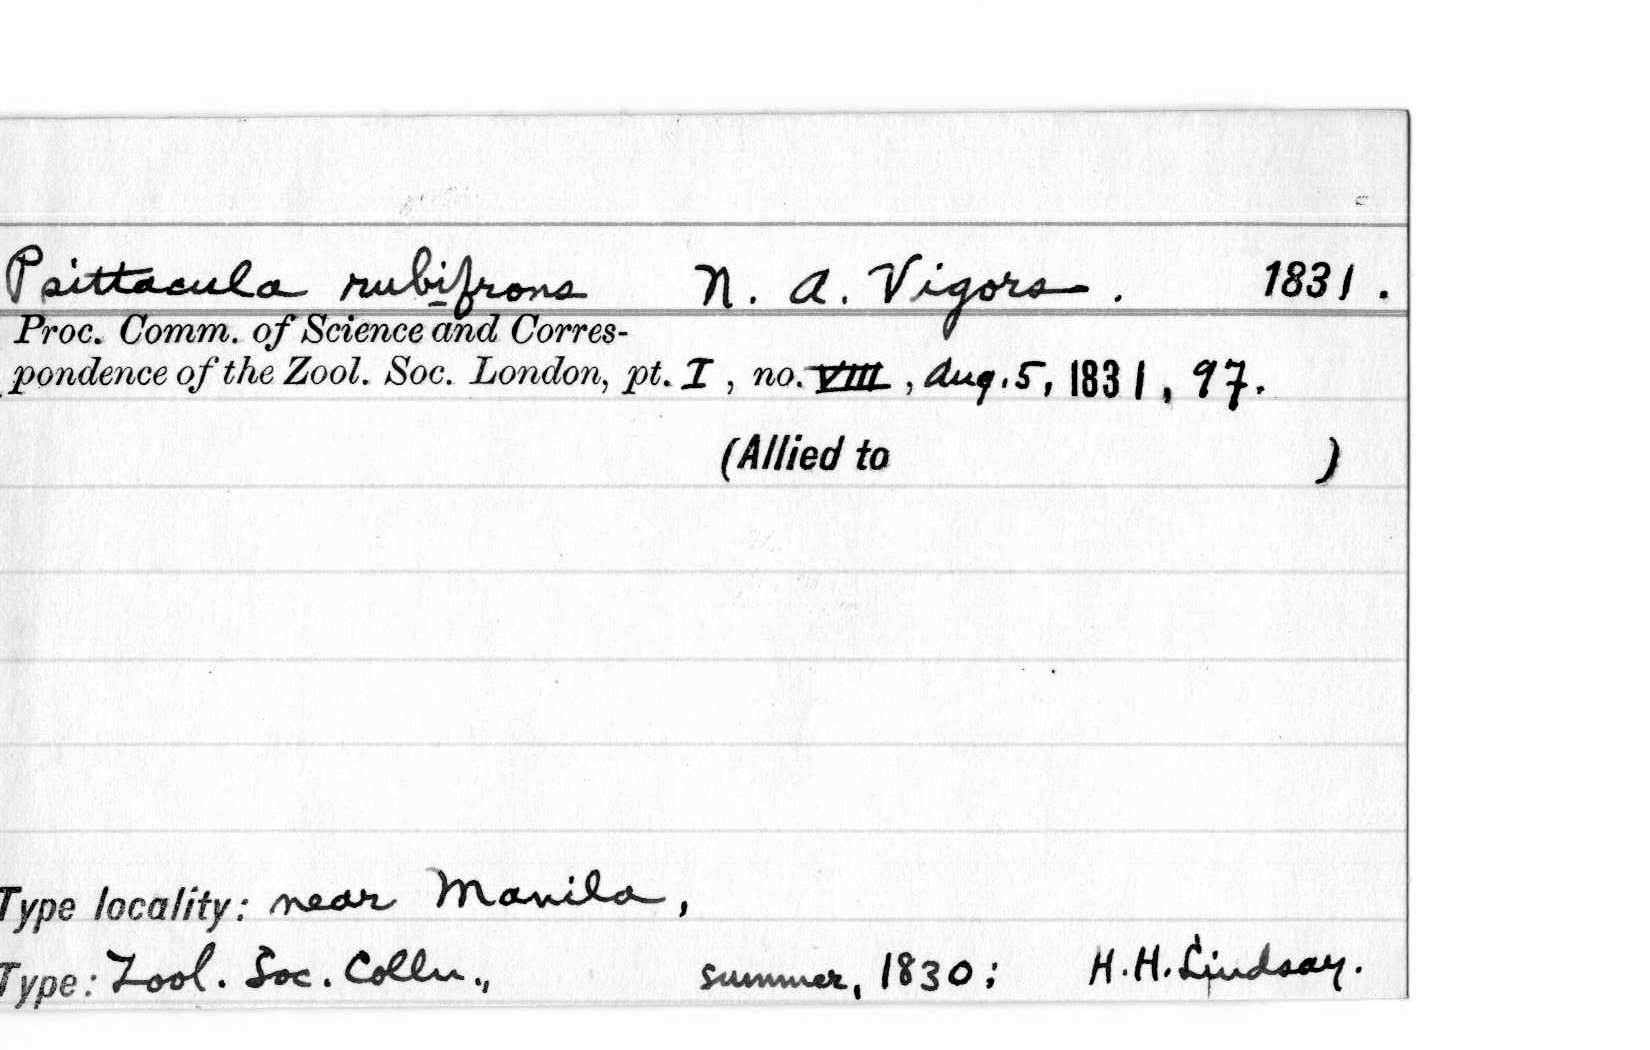 Psittacula rubifrons N. A. Vigors. 1831.
Proc. Comm. of Science and Corres-
pondence of the Zool. Soc. London, pt. I, no. VIII, Aug. 5, 1831, 97.
(Allied to )
Type locality: near Manila,
Type: Zool. Soc. Colln., summer, 1830; H. H. Lindsay.